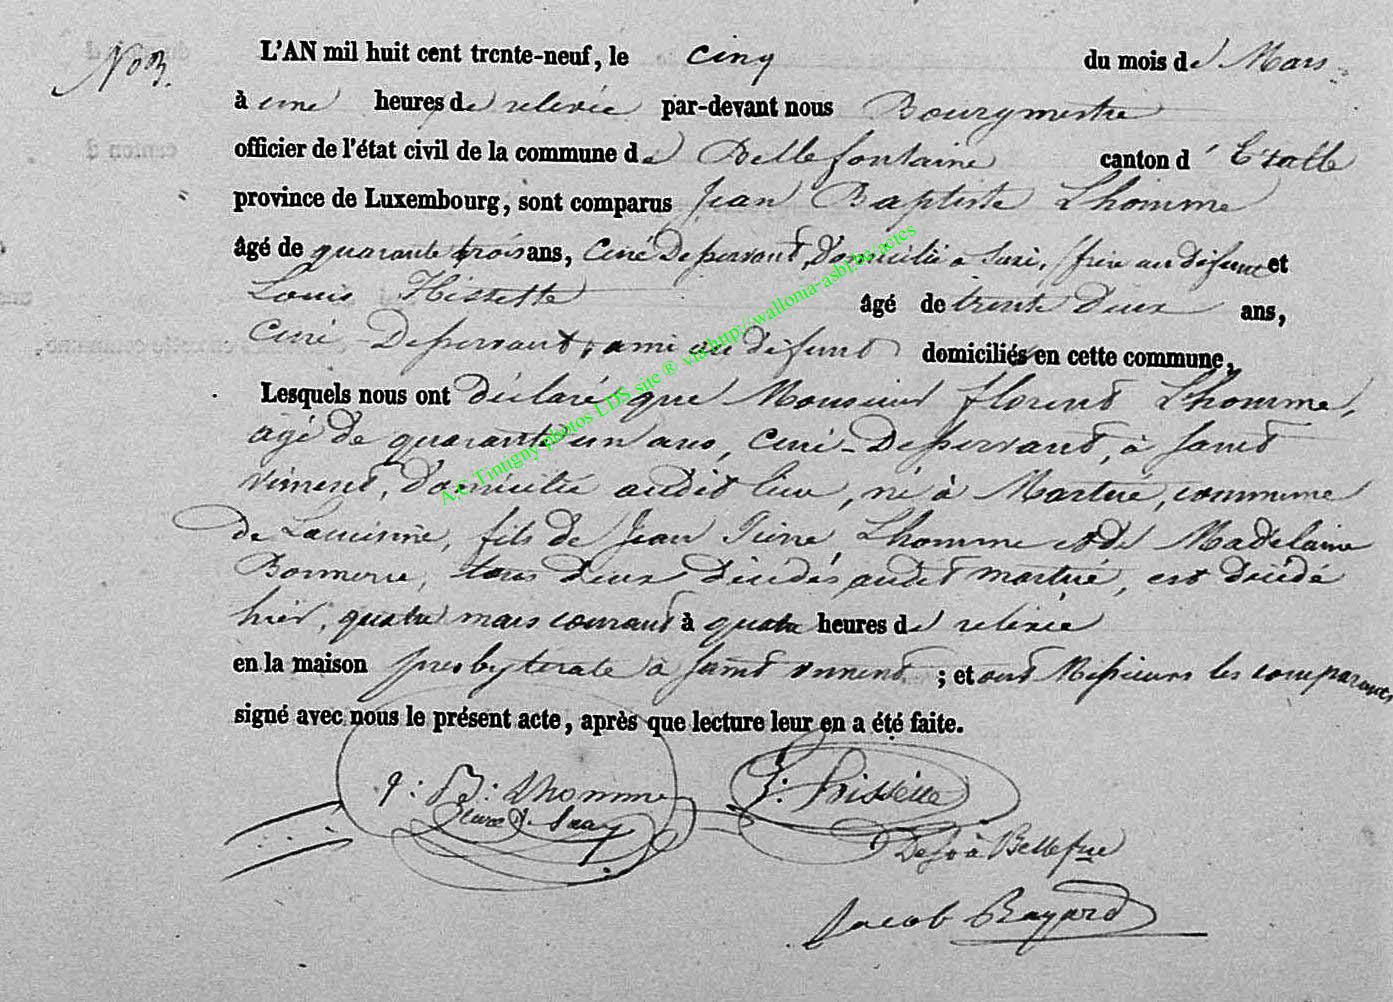 No 3.
L'AN mil huit cent trente-neuf, le cinq du mois de Mars
à une heures de relevée par-devant nous Bourgmestre
officier de l'état civil de la commune de Bellefontaine canton d'Etalle
province de Luxembourg, sont comparus Jean Baptiste Lhomme
âgé de quarante trois ans, Curé Desservant, domicilié à, frère au défunt et
Louis Hissette âgé de trente deux ans,
Curé Desservant, ami au défunt domiciliés en cette commune,
Lesquels nous ont déclaré que Monsieur Florent Lhomme,
agé de quarante un ans, Curé-Desservant, à Saint
Vincent, domicilié audit lieu, né à Martué, commune
de Lacuisine, fils de Jean Pierre Lhomme et de Madelaine
tous deux décédés audit Martué, est décédé
hier, quatre mars courant à quatre heures de relevée
en la maison presbyterale à Saint Vincent ; et ont Messieurs les comparants
signé avec nous le présent acte, après que lecture leur en a été faite.
J: B: Lhomme
curé d
L: Hissette
Des à Bellef
Jacob Bayard
A.C.Tintigny photos LDS site ® via http://wallonia-asbl.be/actes